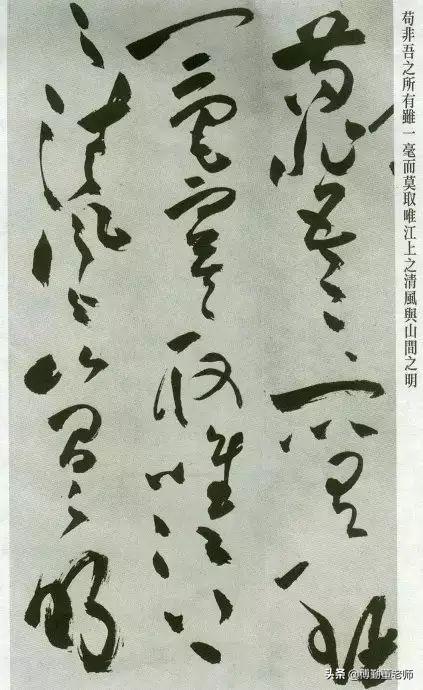 苟非吾之所有雖一毫而莫取唯江上之清風與山間之明
苟非吾之所有雖
一毫而莫取唯江上
之清風與山間之明
头条 @博勤董老师